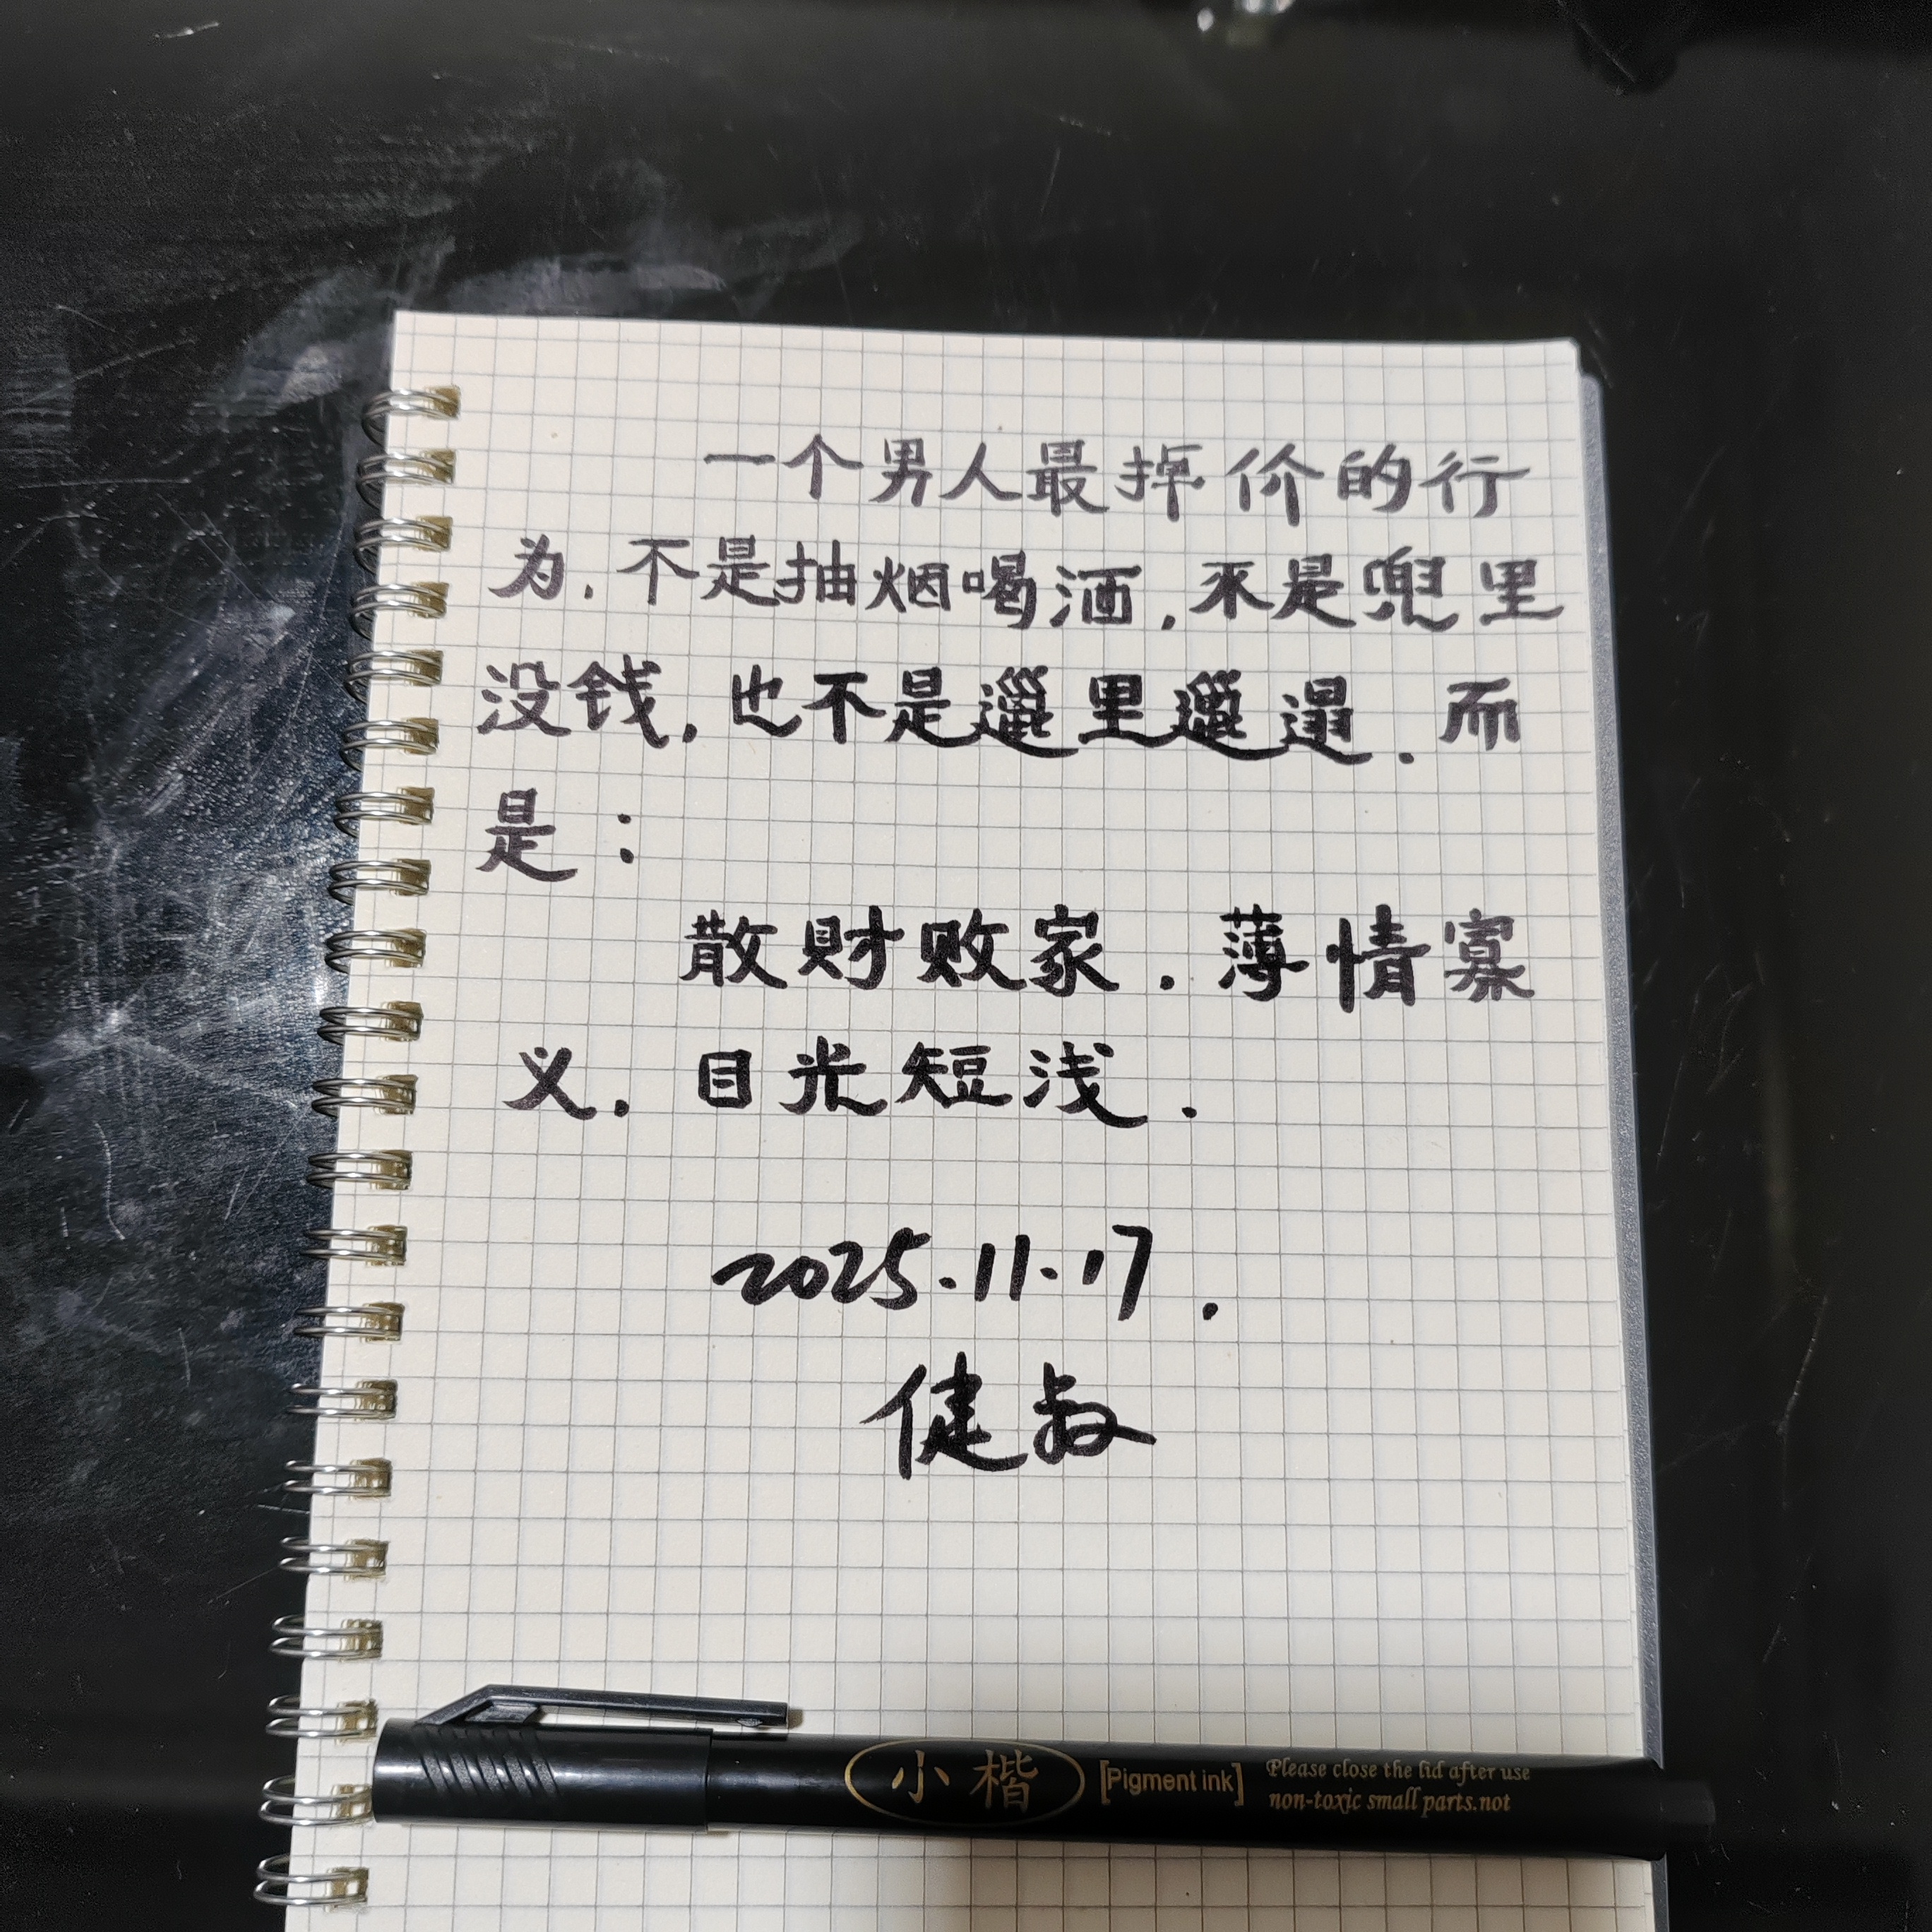 一个男人最掉价的行
为.不是抽烟喝酒,不是兜里
没钱,也不是邋里邋遢.而
是:
散财败家.薄情寡
义.目光短浅.
2025.11.17.
健叔
小楷 [Pigment ink] Please close the lid after use
non-toxic small parts.not